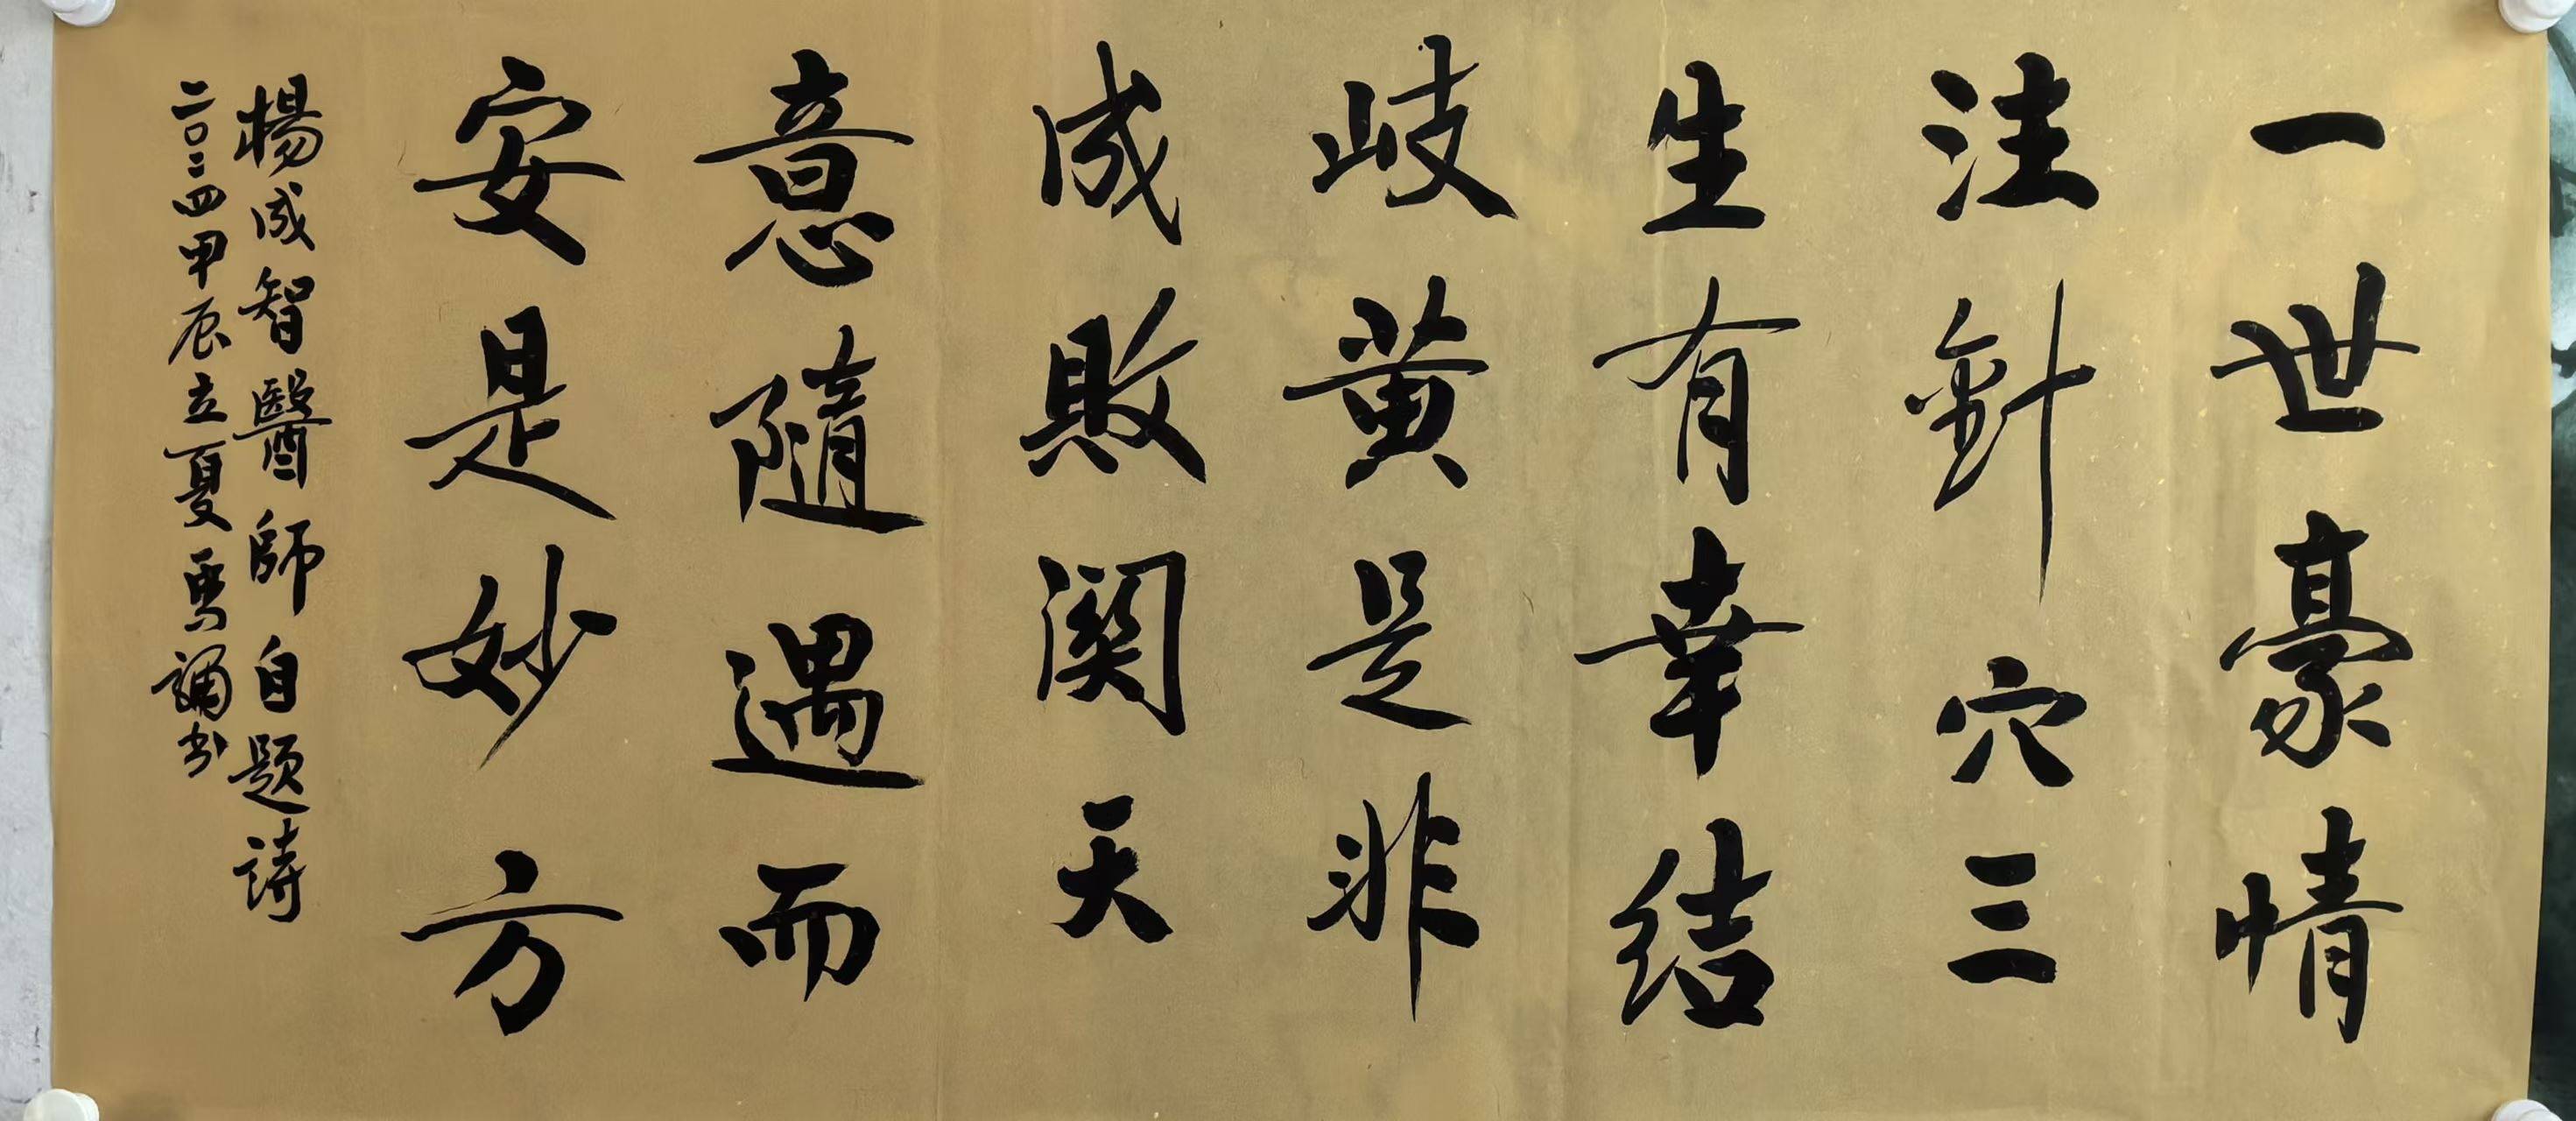 一世豪情
注針穴三
生有幸结
歧黄是非
成敗関天
意隨遇而
安是妙方
楊成智醫師自题詩
二〇二四甲辰立夏